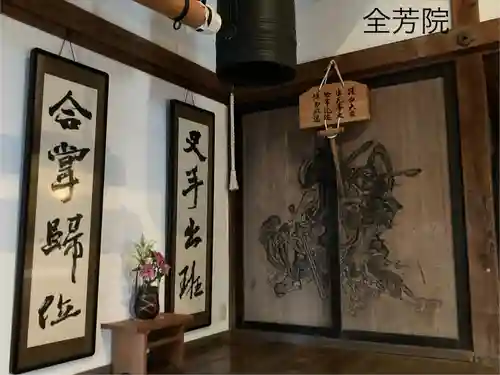 全芳院
合掌歸位
叉手出班